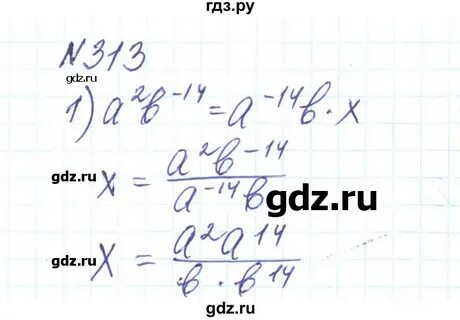 гдз.ру
№313
gdz.ru
1) a²b⁻¹⁴ = a⁻¹⁴b · x
gdz.ru x = a²b⁻¹⁴ / a⁻¹⁴b gdz.ru
gdz.ru x = a²a¹⁴ / b · b¹⁴
gdz.ru